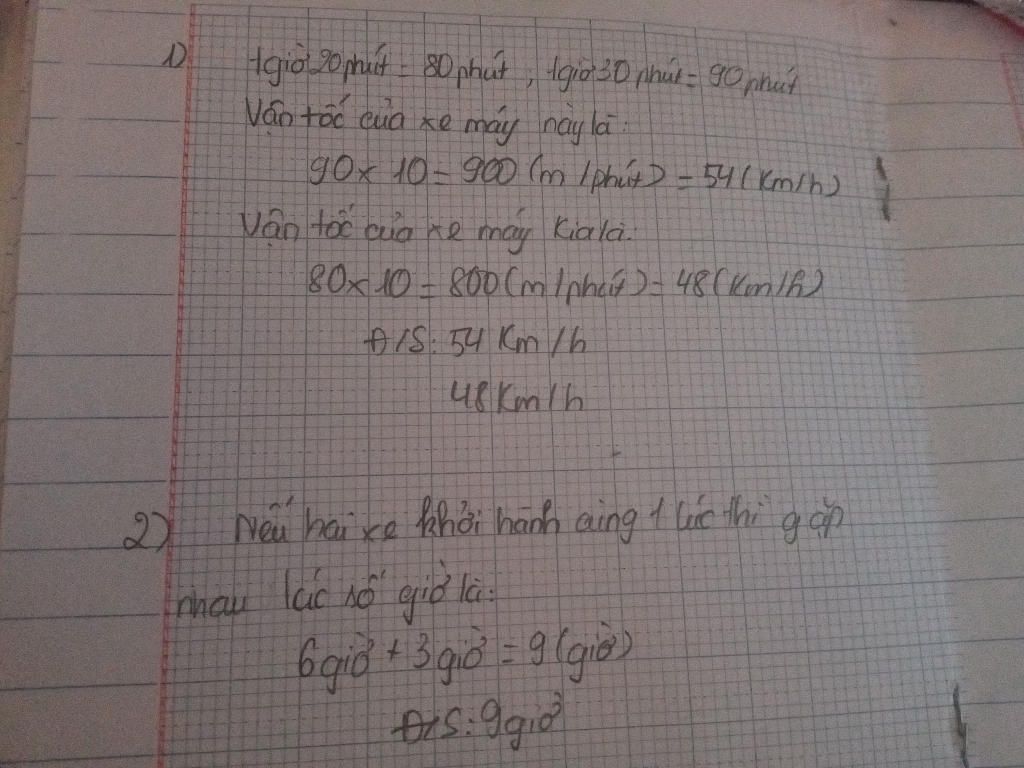 1) 1giờ 20 phút = 80 phút, 1giờ 30 phút = 90 phút
Vận tốc của xe máy này là:
90 x 10 = 900 (m/phút) = 54 (km/h)
Vận tốc của xe máy kia là:
80 x 10 = 800 (m/phút) = 48 (km/h)
Đ/S: 54 km/h
48 km/h
2) Nếu hai xe khởi hành cùng 1 lúc thì gặp
nhau lúc số giờ là:
6 giờ + 3 giờ = 9 (giờ)
Đ/S: 9 giờ